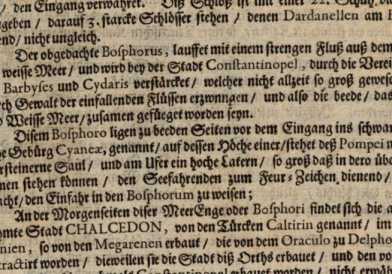 den Eingang verwahret. Diß Schloß ist mit einer 22. Schuh
geben / darauf 3. starcke Schlösser stehen / denen Dardanellen am
end / nicht ungleich.
Der obgedachte Bosphorus, lauffet mit einem strengen Fluß auß dem
weisse Meer / und wird bey der Stadt Constantinopel, durch die Verein
Barbyses und Cydaris verstärcket / welcher nicht allzeit so groß gewe
ch Gewalt der einfallenden Flüssen erzwungen / und also die beede / das
Weisse Meer / zusamen gefüeget worden seyn.
Disem Bosphoro ligen zu beeden Seiten vor dem Eingang ins schwar
he Gebürg Cyaneæ, genannt / auf dessen Höche einer / stehet deß Pompei
rsteinerne Saul / und am Ufer ein hoche Latern / so groß daß in dero üb
nen stehen können / den Seefahrenden zum Feur-Zeichen dienend /
acht / den Einfahr in den Bosphorum zu weisen;
An der Morgenseiten diser MeerEnge oder Bosphori findet sich die a
hmte Stadt CHALCEDON, von den Türcken Caltirin genannt / im
nien, so von den Megarenen erbaut / die von dem Oraculo zu Delpho
ractirt worden / dieweilen sie die Stadt diß Orths erbauet / und den
Constantinopel erbauet worden / nicht